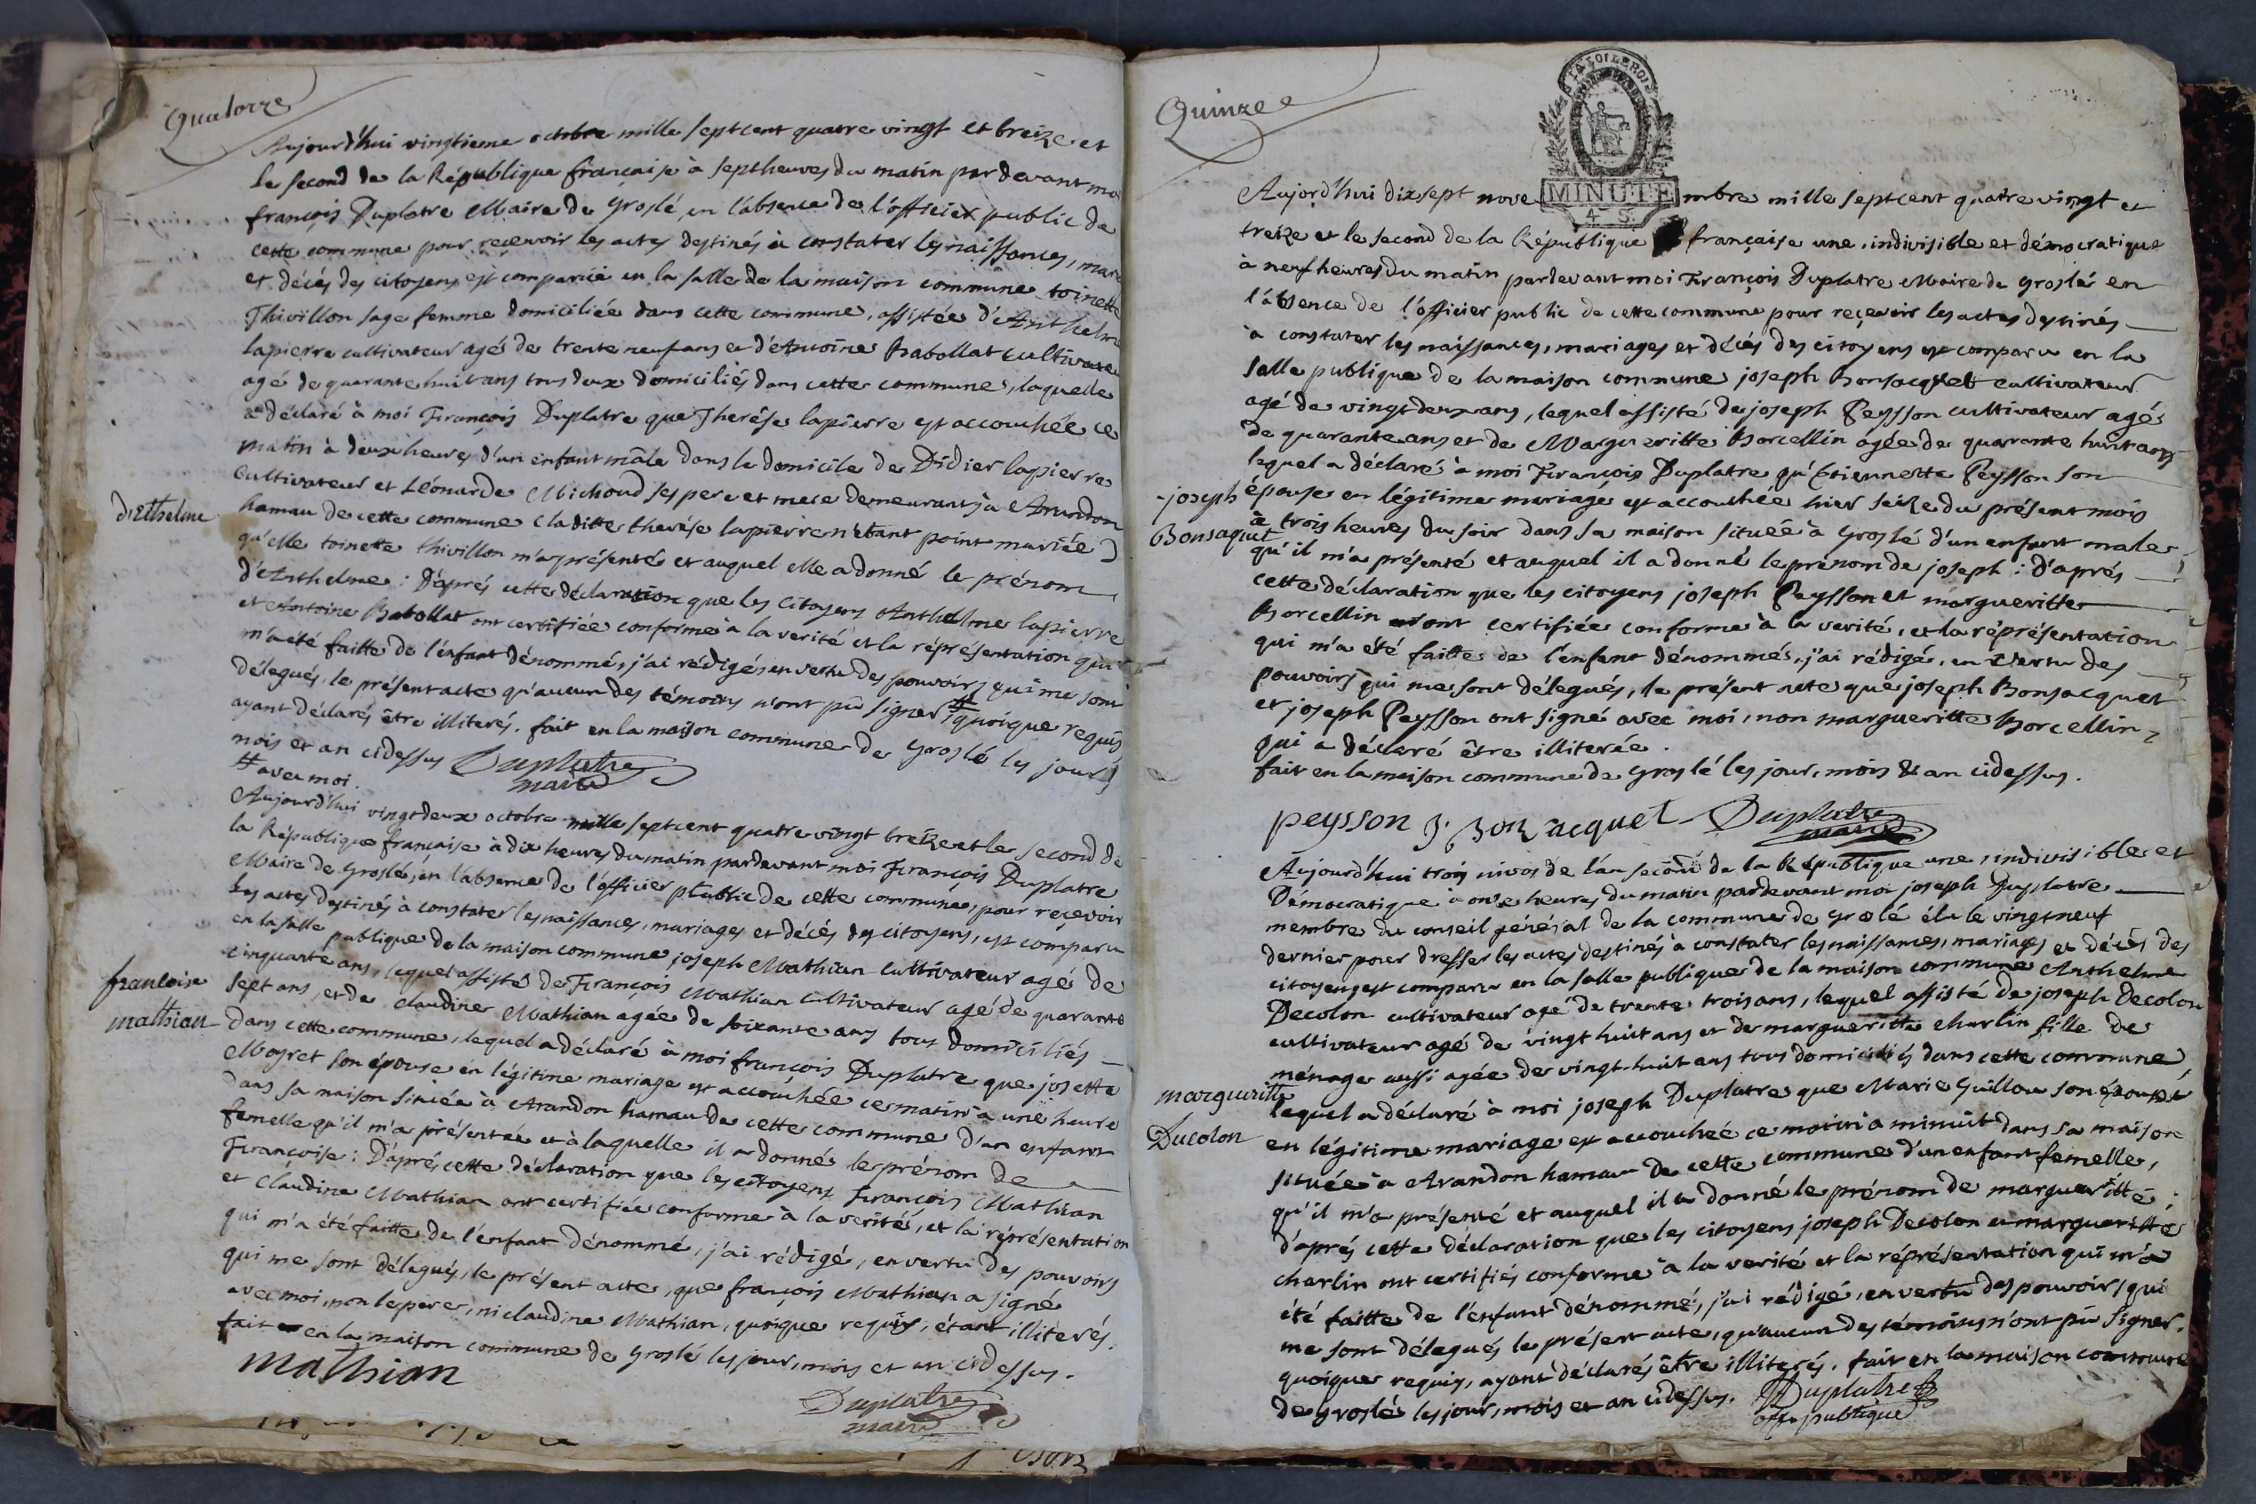 Quatorze
Aujourd'hui vingtieme octobre mille sept cent quatre vingt et treize et
le second de la République française à sept heures du matin par devant moi
françois Duplatre Maire de Groslé en l'absence de l'officier public de
cette commune pour reçevoir les actes destinés à constater les naissances, mari
et décés des citoyens est comparüe en la salle de la maison commune toinette
Thivillon sage femme domiciliée dans cette commune, assistée d'Anthelme
lapierre cultivateur agé de trente neuf ans et d'Antoine Babollat cultivate
agé de quarante huit ans tous deux domiciliés dans cette commune, laquelle
a déclaré à moi François Duplatre que Therése lapierre est accouchée ce
matin à deux heures d'un enfant mâle dans le domicile de Didier lapierre
Cultivateur et Léonarde Michoud ses pere et mere demeurants à Arandon
hamau de cette commune (la ditte therése lapierre n'étant point mariée)
qu'elle toinette thivillon m'a présenté et auquel elle a donné le prénom
d'Anthelme : D'aprés cette déclaration que les Citoyens Anthelme lapierre
et Antoine Babollat ont certifiée conforme à la verité et la réprésentation qui
m'a été faitte de l'enfant dénommé, j'ai rédigé en vertu des pouvoirs qui me sont
délegués, le présent acte qu'aucun des témoins n'ont pû signer # quoique requis
ayant déclarés être illiterés. fait en la maison commune de Groslé les jour,
mois et an cidessus Duplatre
maire
# avec moi.
d'Ethelme
Aujourd'hui vingt deux octobre mille sept cent quatre vingt treize et le second de
la République française à dix heures du matin par devant moi François Duplatre
Maire de Groslé, en l'absence de l'officier public de cette commune, pour reçevoir
les actes destinés à constater les naissances, mariages et décés des citoyens, est comparu
en la salle publique de la maison commune joseph Mathian cultivateur agé de
cinquante ans, lequel assisté de François Mathian cultivateur agé de quarante
sept ans, et de Claudine Mathian agée de soixante ans tous domiciliés
dans cette commune, lequel a déclaré à moi françois Duplatre que josette
Moyret son épouse en légitime mariage est accouchée ce matin à une heure
dans sa maison située à Arandon hamau de cette commune d'un enfant
femelle qu'il m'a présentée et à laquelle il a donné le prénom de
Françoise : D'aprés cette déclaration que les citoyens François Mathian
et Claudine Mathian ont certifiée conforme à la verité, et la réprésentation
qui m'a été faitte de l'enfant dénommé, j'ai rédigé, en vertu des pouvoirs
qui me sont délegués, le présent acte, que françois Mathian a signé
avec moi, non le pere, ni claudine Mathian, quoique requis, étant illiterés.
fait en la maison commune de Groslé les jour, mois et an cidessus.
francoise
mathian
Mathian
Duplatre
maire
Quinze
MINUTE
4. S.
Aujord'hui dix sept novembre mille sept cent quatre vingt et
treize et le second de la République française une, indivisible et démocratique
à neuf heures du matin pardevant moi François Duplatre Maire de Groslé en
l'absence de l'officier public de cette commune pour reçevoir les actes destinés
à constater les naissances, mariages et décés des citoyens est comparu en la
salle publique de la maison commune joseph Bonsacquet cultivateur
agé de vingt deux ans, lequel assisté de joseph Peysson cultivateur agé
de quarante ans et de Margueritte Borcellin agée de quarante huit ans
lequel a déclaré à moi François Duplatre qu'Etiennette Peysson son
épouse en légitime mariage est accouchée hier seize du présent mois
à trois heures du soir dans sa maison située à Groslé d'un enfant male
qu'il m'a présenté et auquel il a donné le prénom de joseph : D'aprés
cette déclaration que les citoyens joseph Peysson et margueritte
Borcellin ont certifiée conforme à la verité, et la réprésentation
qui m'a été faitte de l'enfant dénommé, j'ai rédigé, en vertu des
pouvoirs qui me sont délegués, le présent acte que joseph Bonsacquet
et joseph Peysson ont signé avec moi, non margueritte Borcellin,
qui a déclaré être illiterée.
fait en la maison commune de Groslé les jour, mois & an cidessus.
joseph
Bonsaquet
peysson J. Bonzacquet Duplatre
maire
Aujourd'hui trois nivos de l'an second de la République une, indivisible et
Démocratique à onse heures du matin pardevant moi joseph Duplatre
membre du conseil général de la commune de Groslé élu le vingt neuf
dernier pour dresser les actes destinés à constater les naissances, mariages et décés des
citoyens est comparu en la salle publique de la maison commune Anthelme
Decolon cultivateur agé de trente trois ans, lequel assisté de joseph Decolon
cultivateur agé de vingt huit ans et de margueritte charlin fille de
ménage aussi agée de vingt-huit ans tous domiciliés dans cette commune,
lequel a déclaré à moi joseph Duplatre que Marie Guillou son épouse
en légitime mariage est accouchée ce matin à minuit dans sa maison
située à Arandon hamau de cette commune d'un enfant femelle,
qu'il m'a présenté et auquel il a donné le prénom de margueritte :
d'aprés cette déclaration que les citoyens joseph Decolon et margueritte
charlin ont certifiés conforme à la verité et la réprésentation qui m'a
été faitte de l'enfant dénommé, j'ai rédigé, en vertu des pouvoirs qui
me sont délegués le présent acte, qu'aucun des témoins n'ont pû signer,
quoique requis, ayant déclarés être illiterés. fait en la maison commune
de Groslé les jour, mois et an cidessus. Duplatre
offi. publique
margueritte
Ducolon